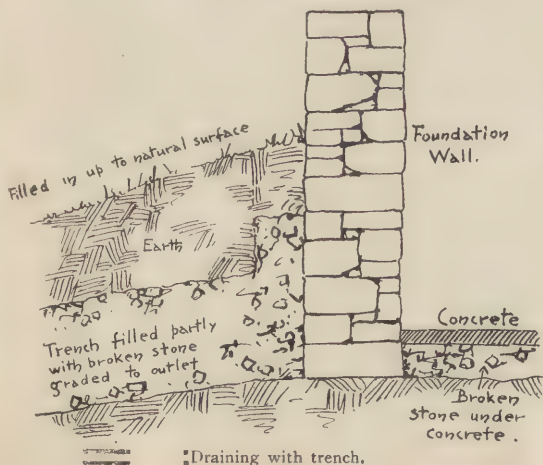 Filled in up to natural surface
Foundation
Wall.
Earth
Trench filled partly
with broken stone
graded to outlet
Concrete
Broken
stone under
concrete.
Draining with trench.